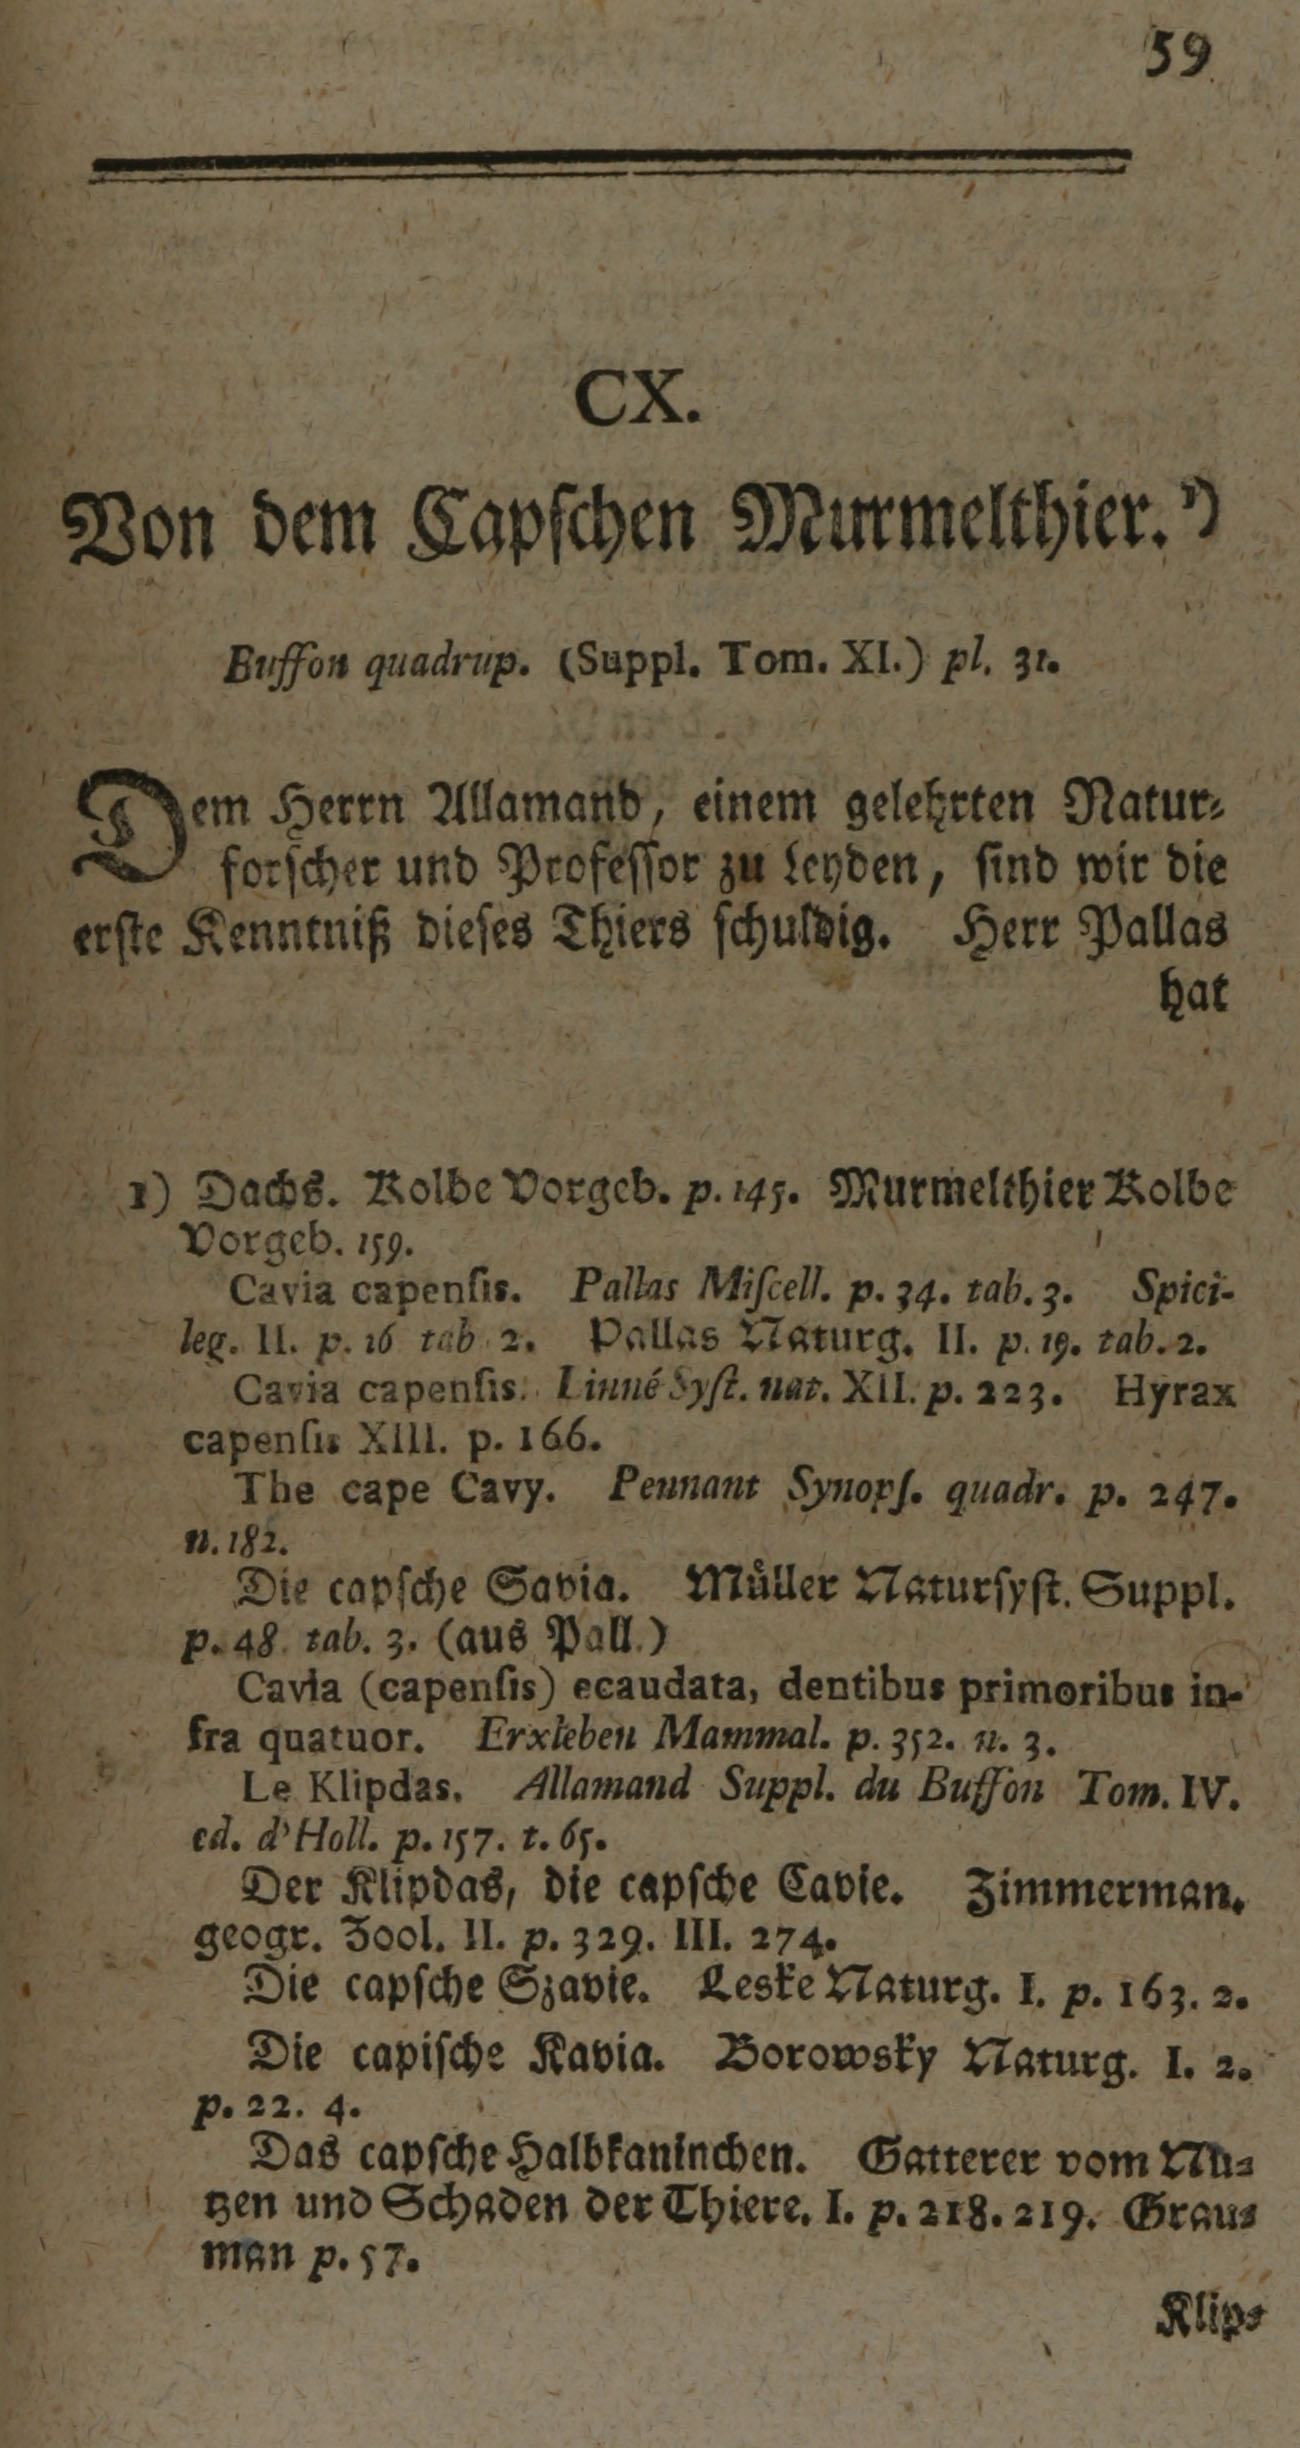 59
CX.
Von dem Capſchen Murmelthier. ¹)
Buffon quadrup. (Suppl. Tom. XI.) pl. 31.
Dem Herrn Allamand, einem gelehrten Natur-
forſcher und Profeſſor zu Leyden, ſind wir die
erſte Kenntniß dieſes Thiers ſchuldig. Herr Pallas
hat
1) Dachs. Kolbe Vorgeb. p. 145. Murmelthier Kolbe
Vorgeb. 159.
Cavia capenſis. Pallas Miſcell. p. 34. tab. 3. Spici-
leg. II. p. 16 tab 2. Pallas Naturg. II. p. 19. tab. 2.
Cavia capenſis. Linné Syſt. nat. XII. p. 223. Hyrax
capenſis XIII. p. 166.
The cape Cavy. Pennant Synopſ. quadr. p. 247.
n. 182.
Die capſche Savia. Müller Naturſyſt. Suppl.
p. 48. tab. 3. (aus Pall.)
Cavia (capenſis) ecaudata, dentibus primoribus in-
fra quatuor. Erxleben Mammal. p. 352. n. 3.
Le Klipdas. Allamand Suppl. du Buffon Tom. IV.
ed. d'Holl. p. 157. t. 65.
Der Klipdas, die capſche Cavie. Zimmerman.
geogr. Zool. II. p. 329. III. 274.
Die capſche Szavie. Leske Naturg. I. p. 163. 2.
Die capiſche Kavia. Borowsky Naturg. I. 2.
p. 22. 4.
Das capſche Halbkaninchen. Gatterer vom Nu-
tzen und Schaden der Thiere. I. p. 218. 219. Grau-
man p. 57.
Klip-